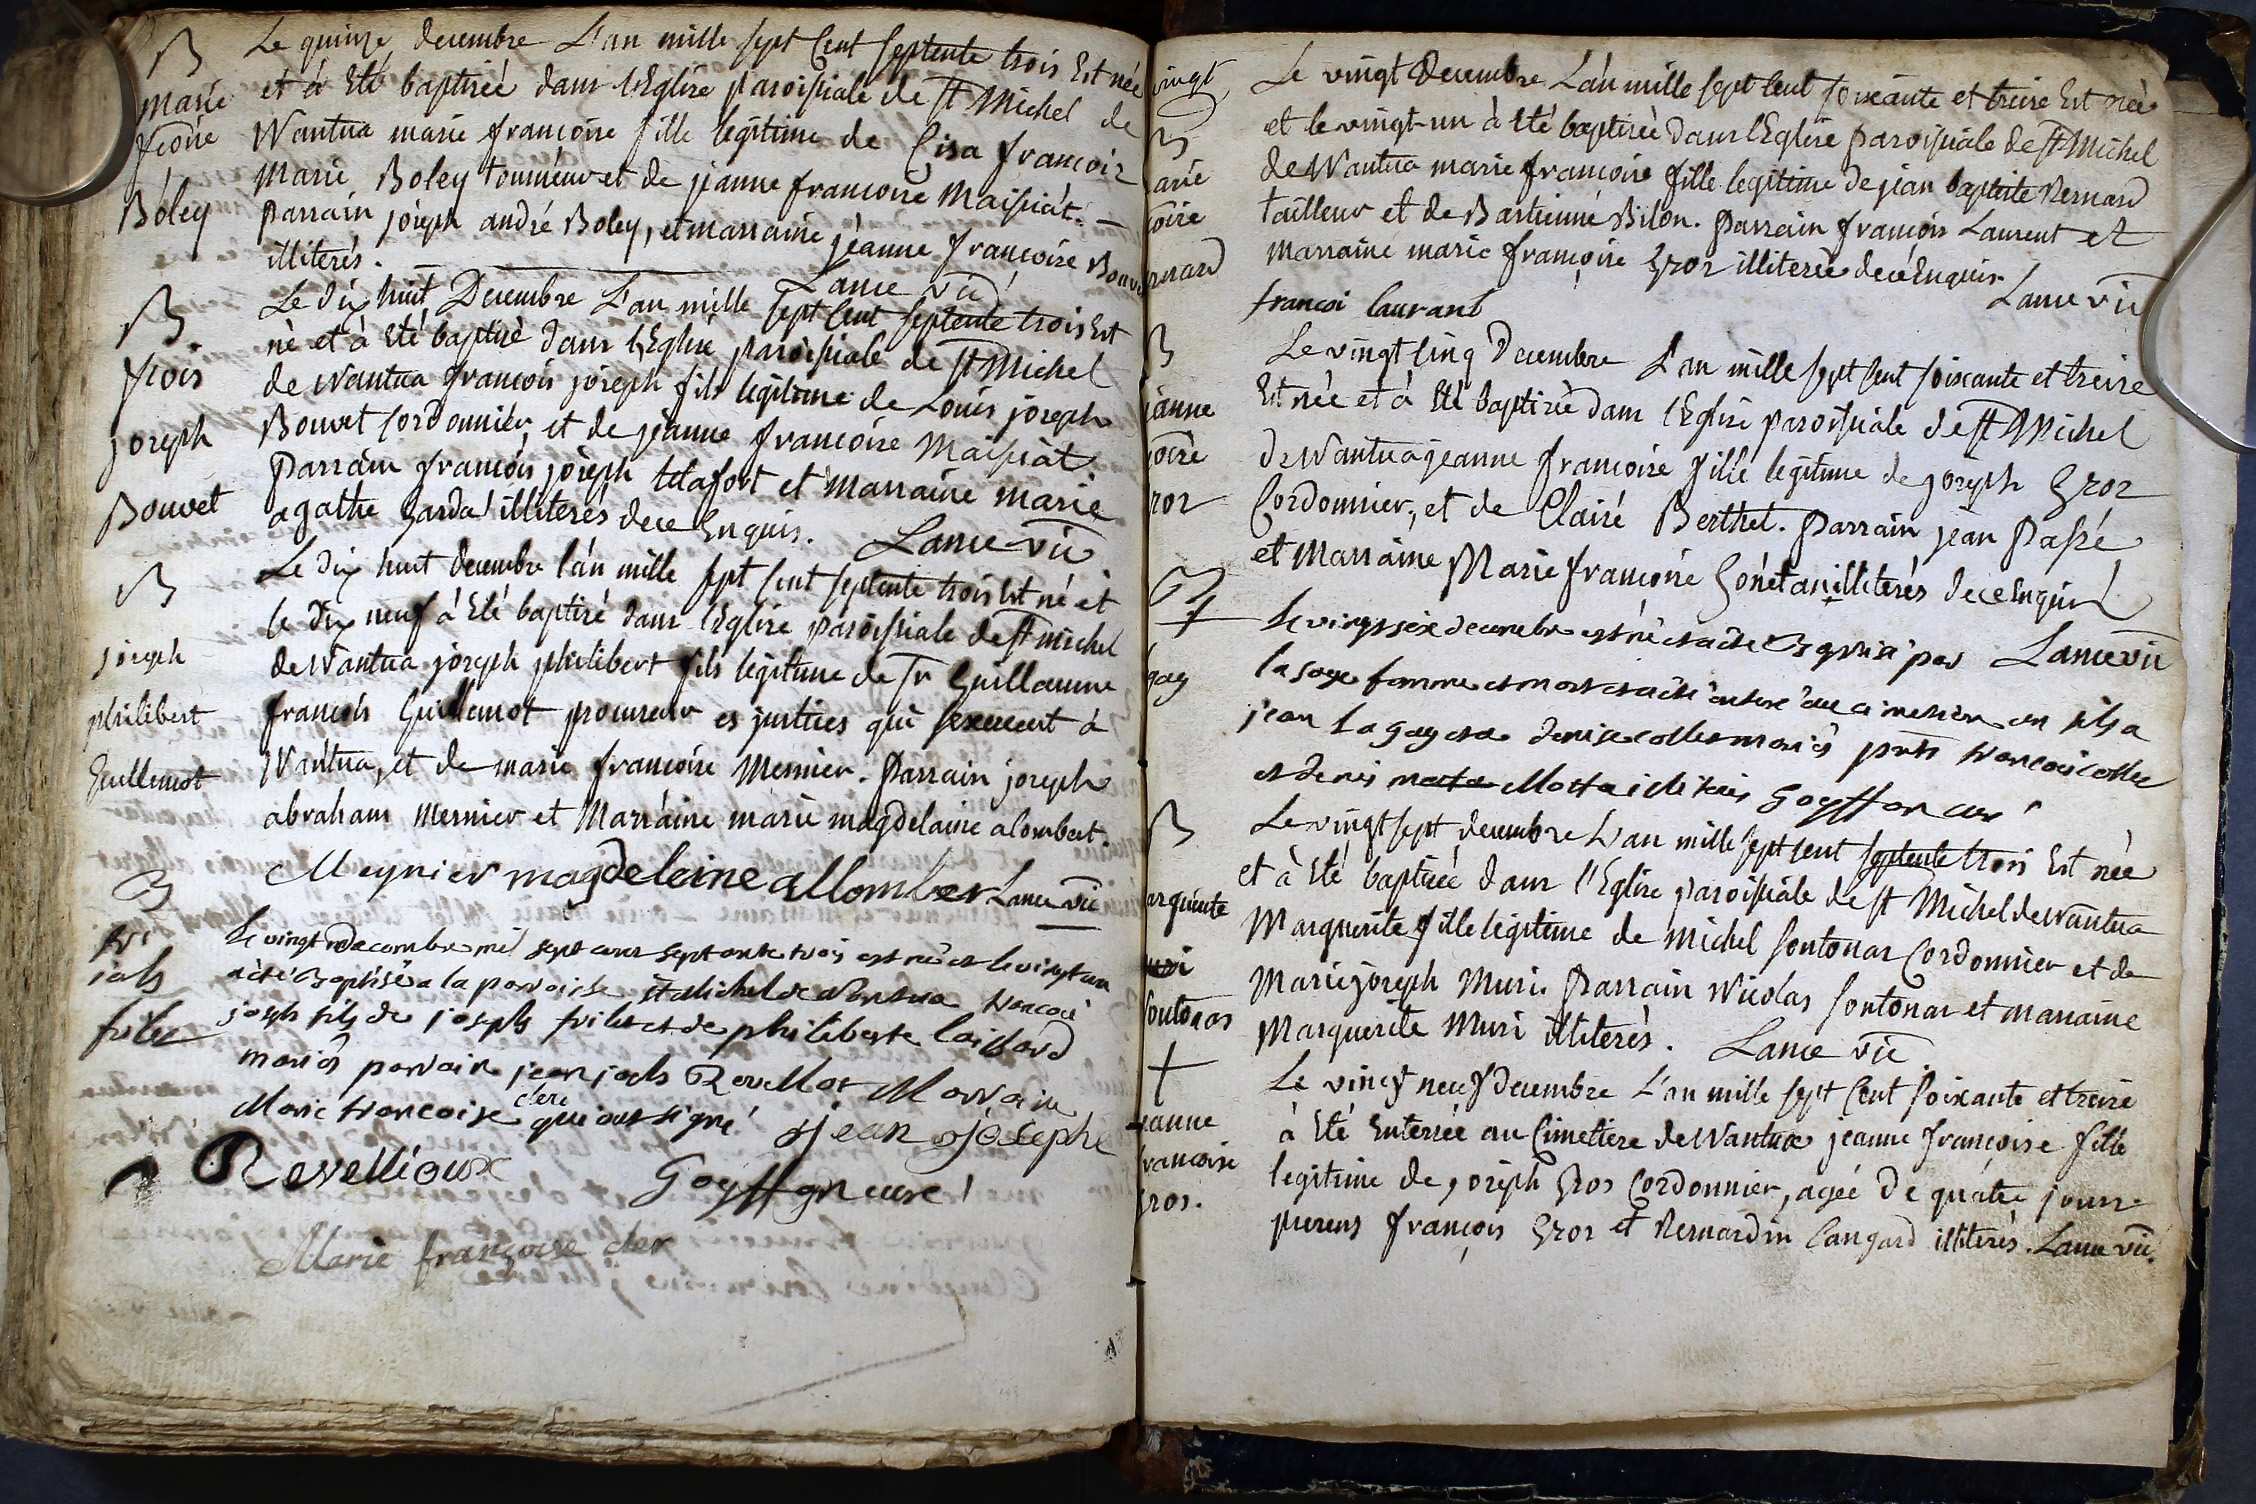 B
Marie
fcoise
Boley
Le quinze decembre L'an mille sept Cent septente trois Est née
et à Eté baptisée dans l'Eglise paroissiale de st Michel de
Nantua marie francoise fille legitime de Cisa francois
Marie Boley tourneur et de jeanne francoise Maissiat. —
parrain joseph andré Boley, et marraine jeanne francoise Bouv
illiterés.
Lance vic
B
fcois
joseph
Bouvet
Le dix huit Decembre L'an mille sept Cent septente trois Est
né et à Eté baptisé dans l'Eglise paroissiale de st Michel
de Nantua francois joseph fils legitime de Louis joseph
Bouvet cordonnier et de jeanne francoise Maissiat
parrain francois joseph telafort et marraine marie
agathe Garda illiterés de ce Enquis. Lance vic
B
joseph
philibert
Guillemot
Le dix huit decembre l'an mille sept cent septente trois Est né et
le dix neuf à Eté baptisé dans l'Eglise paroissiale de st michel
de Nantua joseph philibert fils legitime de sr Guillaume
francois Guillemot procureur es justices qui s'exercent à
Nantua, et de marie francoise Mernier. parrain joseph
abraham Mernier et Marraine marie magdelaine alombert.
Meynier magdeleine allomber Lance vic
B
fcs
joph
frilet
Le vingt decembre mil sept cent septante trois est né et le vingt un
a été Baptisé a la paroisse st Michel de Nantua francois
joseph fils de joseph frilet et de philiberte laissard
mariés parrain jean josph Revellat Marraine
Marie francoise clerc qui ont signé
jean josephe
Revellioux
Goyffon cure
Marie françoise cler
vingt
B
arie
coise
ernard
Le vingt Decembre L'an mille sept Cent soixante et treize Est née
et le vingt-un à Eté baptisée dans l'Eglise paroissiale de st Michel
de Nantua marie francoise fille legitime de jean baptiste Bernard
tailleur et de Bastienne Bilon. parrain francois Laurent et
Marraine marie françoise Gros illiterée de cé Enquis
Lance vic
francoi laurant
B
jeanne
coise
ros
Le vingt Cinq Decembre L'an mille sept Cent soixante et treize
Est née et à Eté baptisée dans l'Eglise paroissiale de st Michel
de Nantua jeanne francoise fille legitime de joseph Gros
Cordonnier, et de Claire Berthet. parrain jean Passé
et Marraine Marie francoise Gonetan illiterés de ce Enquis
Lance vic
B
+
gay
Le vingt six decembre est né et a été Baptisé par
la sage femme et mort et a été enterré au cimetiere un fils a
jean La gay et a denise collet mariés pnts francois collet
et denis mata Motta illiterés Goyffon cure
B
arguerite
uri
Sontonas
Le vingt sept decembre L'an mille sept cent septente trois Est née
et à Eté baptisée dans l'Eglise paroissiale de st Michel de Nantua
Marguerite fille legitime de Michel Sontonas Cordonnier et de
Marie joseph Muri. Parrain Nicolas Sontonas et marraine
Marguerite Muri illiterés. Lance vic
+
eanne
francoise
Gros.
Le vingt neuf decembre L'an mille sept Cent soixante et treize
à Eté Enterrée au Cimetiere de Nantua jeanne françoise fille
legitime de joseph Gros Cordonnier, agée de quatre jours
presens françois Gros et Bernardin Cangard illiterés. Lance vic.